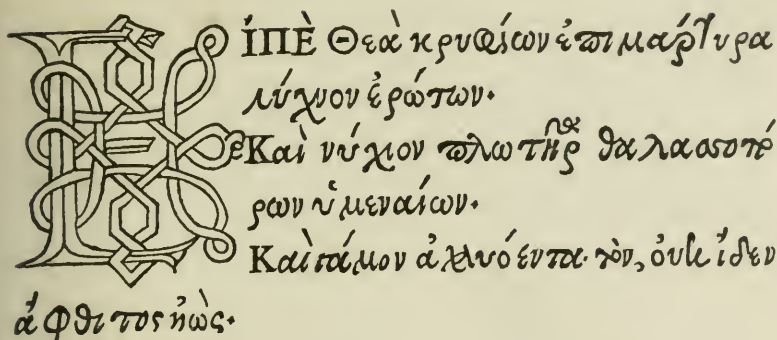 ΕἸΠῈ Θεὰ κρυφίων ἐπιμάρτυρα
λύχνον ἐρώτων.
Καὶ νύχιον πλωτῆρα θαλασσοπό
ρων ὑμεναίων.
Καὶ γάμον ἀχλυόεντα. τὸν, οὐκ ἴδεν
ἄφθιτος ἠὼς.